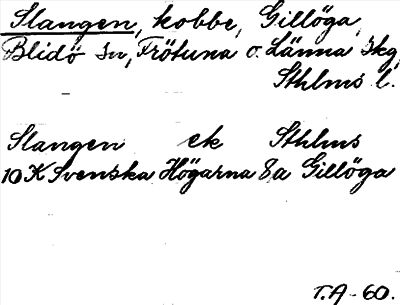 Slangen, kobbe, Gillöga,
Blidö sn, Frötuna o. Länna skg
Sthlms l.
Slangen ek Sthlms
10 K Svenska Högarna 8a Gillöga
T.A-60.